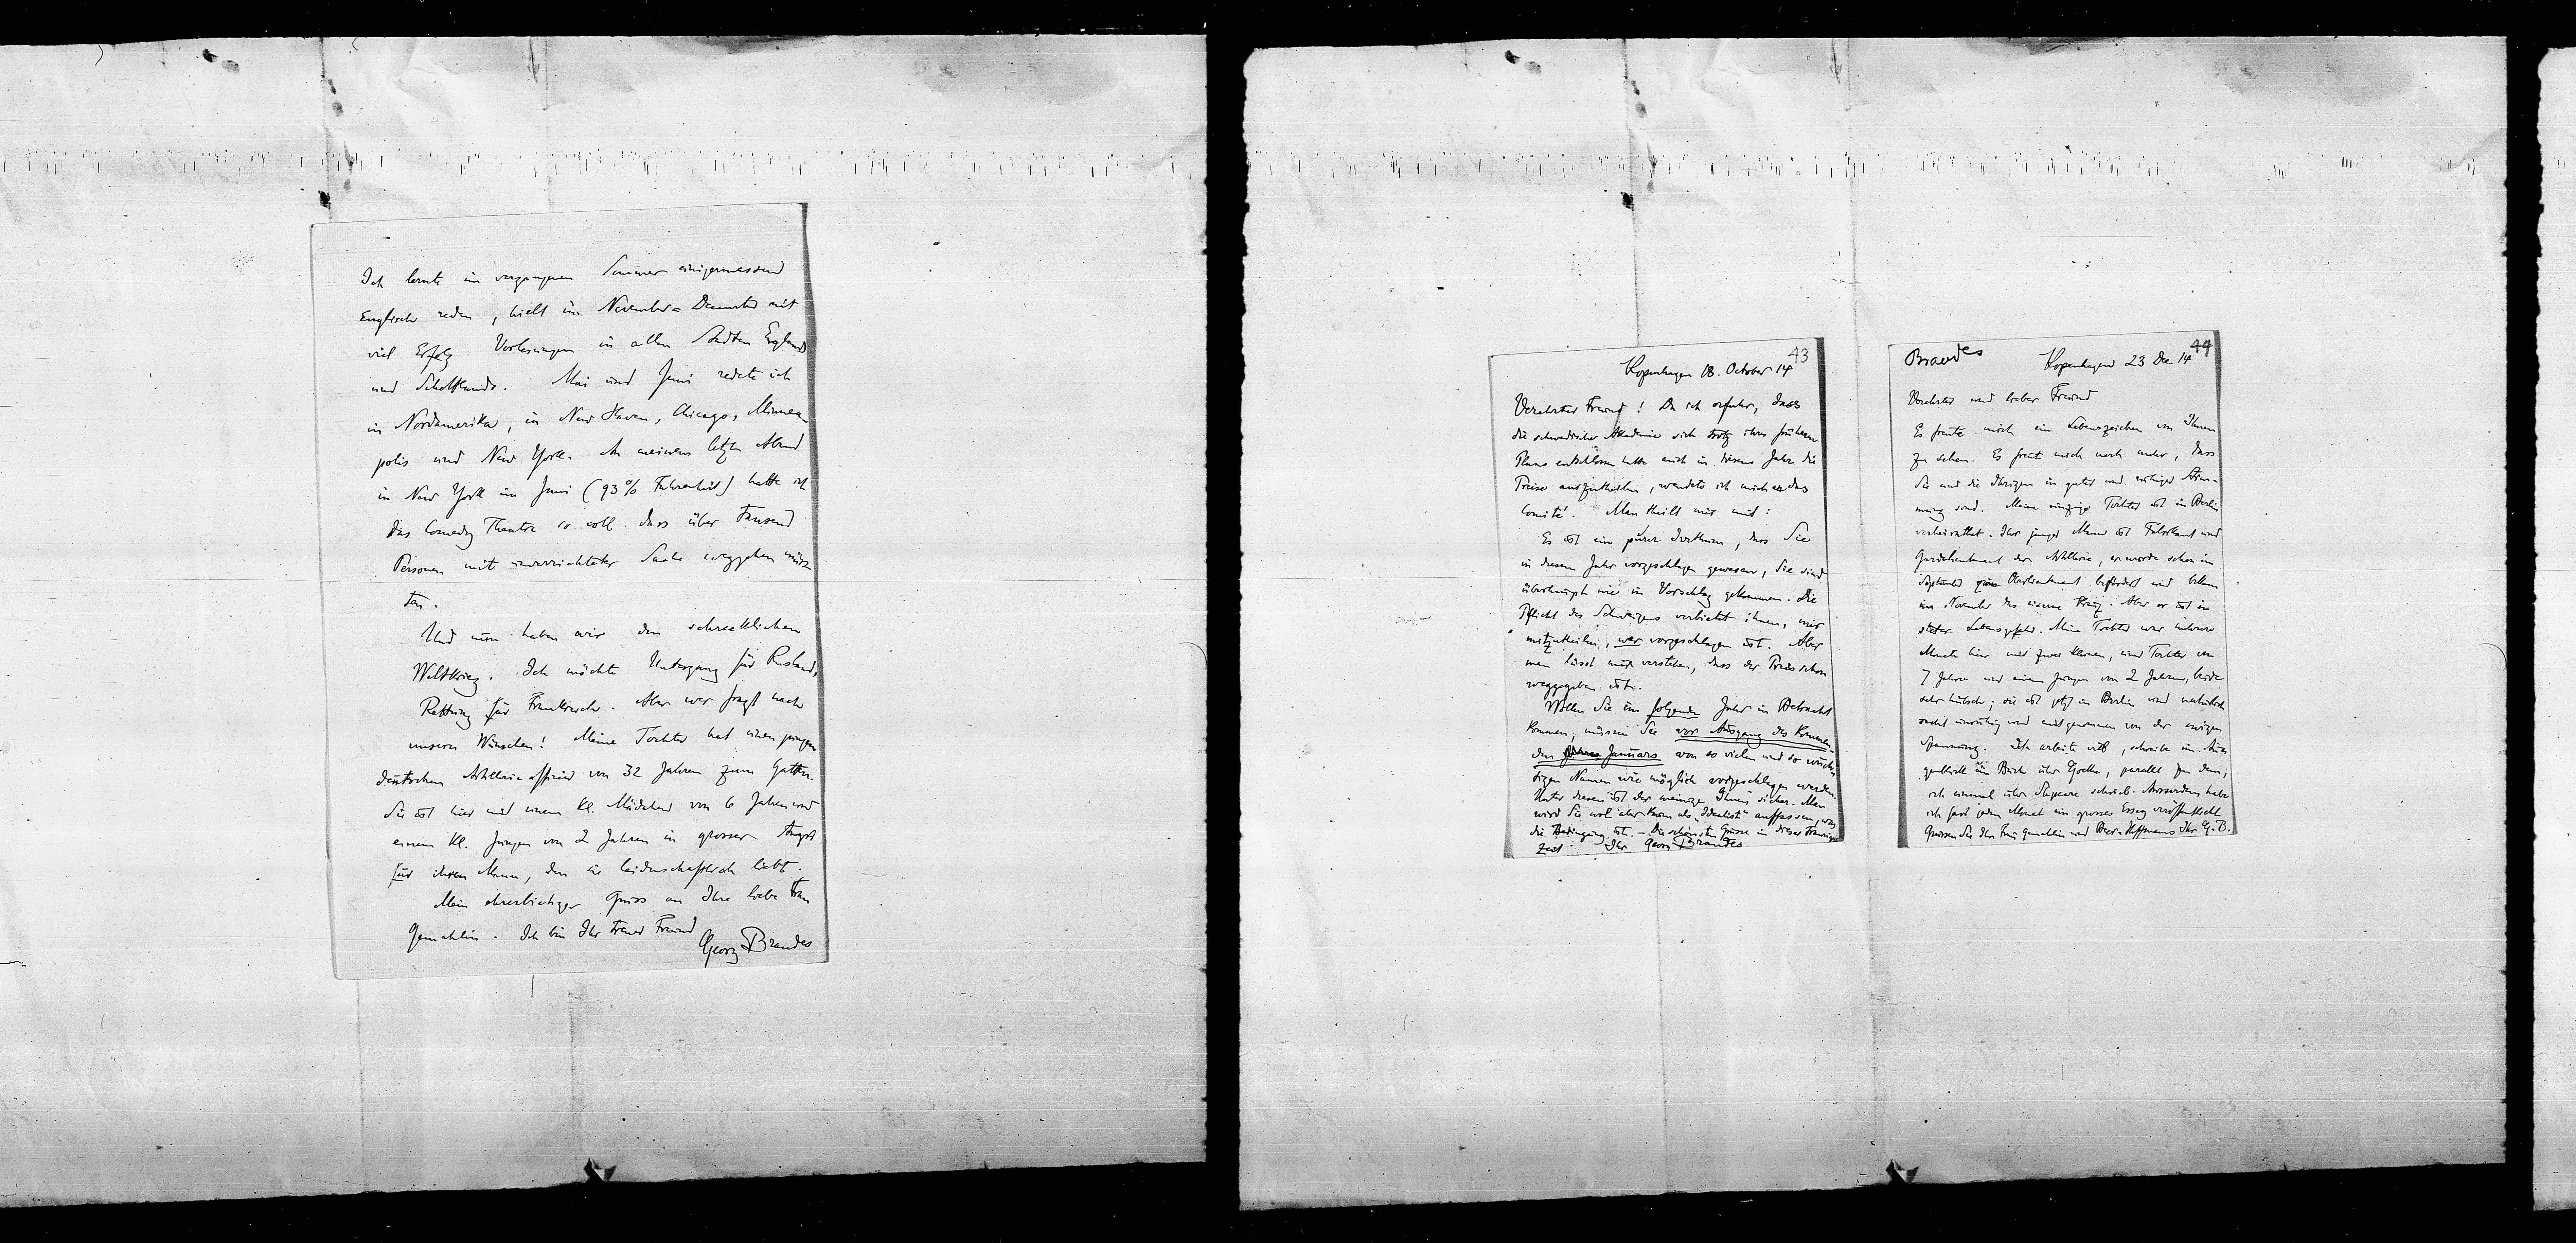 Ich lernte im vergangenen Sommer einigermassend
Englisch reden, hielt im November-December mit
viel Erfolg Vorlesungen in allen Städten Englands
und Schottlands. Mai und Juni redete ich
in Nordamerika, in New Haven, Chicago, Minnea-
polis und New York. An meinem letzten Abend
in New York im Juni (93% Fahrenheit) hatte ich
das Comedy Theatre so voll dass über tausend
Personen mit unverrichteter Sache weggehen müss
ten.
Und nun haben wir den schrecklichen
Weltkrieg. Ich möchte Untergang für Rusland,
Rettung für Frankreich. Aber wer fragt nach
unsern Wünschen! Meine Tochter hat einen jungen
deutschen Artillerieofficier von 32 Jahren zum Gatten.
Sie ist hier mit einem kl. Mädchen von 6 Jahren und
einem kl. Jungen von 2 Jahren in grosser Angst
für ihren Mann, den sie leidenschaftlich liebt.
Mein ehrerbietiger Gruss an Ihre liebe Frau
Gemahlin. Ich bin Ihr treuer Freund
Georg Brandes
43
Kopenhagen 18. October 14
Verehrter Freund! Da ich erfuhr, dass
die schwedische Akademie sich trotz ihres frühern
Plans entschlossen hatte auch in diesem Jahre die
Preise auszutheilen, wandte ich mich an das
Comité. Man theilt mir mit:
Es ist ein purer Irrthum, dass Sie
in diesem Jahr vorgeschlagen gewesen, Sie sind
überhaupt nie in Vorschlag gekommen. Die
Pflicht des Schweigens verbietet ihnen, mir
mitzutheilen, wer vorgeschlagen ist. Aber
man lässt mich verstehen, dass der Preis schon
weggegeben ist.
Wollen Sie im folgenden Jahr in Betracht
kommen, müssen Sie vor Ausgang des kommen-
den Januars von so vielen und so wich
tigen Namen wie möglich vorgeschlagen werden.
Unter diesen ist der meinige Ihnen sicher. Man
wird Sie wol aber kaum als "Idealist" auffassen, was
die Bedingung ist. – Die schönsten Grüsse in dieser traurigen
Zeit Ihr Georg Brandes
Brandes
44
Kopenhagen 23 Dec. 14
Verehrter und lieber Freund
Es freute mich ein Lebenszeichen von Ihnen
zu sehen. Es freut mich noch mehr, dass
Sie und die Ihrigen in guter und ruhiger Stim-
mung sind. Meine einzige Tochter ist in Berlin
verheirathet. Ihr junger Mann ist Fabrikant und
Gardelieutnant der Artillerie, er wurde schon im
September zum Oberlieutnant befördert und bekam
im November das eiserne Kreuz. Aber er ist in
steter Lebensgefahr. Meine Tochter war mehrere
Monate hier mit zwei Kleinen, einer Tochter von
7 Jahre und einem Jungen von 2 Jahren, beide
sehr hübsch; sie ist jetzt in Berlin und natürlich
recht unruhig und mitgenommen von der ewigen
Spannung. Ich arbeite viel, schreibe im Au-
genblick ein Buch über Goethe, parallel zu dem,
ich einmal über Shakspeare schrieb. Ausserdem habe
ich fast jeden Monat ein grosses Essay veröffentlicht
Grüssen Sie Ihre Frau Gemahlin und Beer-Hoffmanns Ihr G. B.